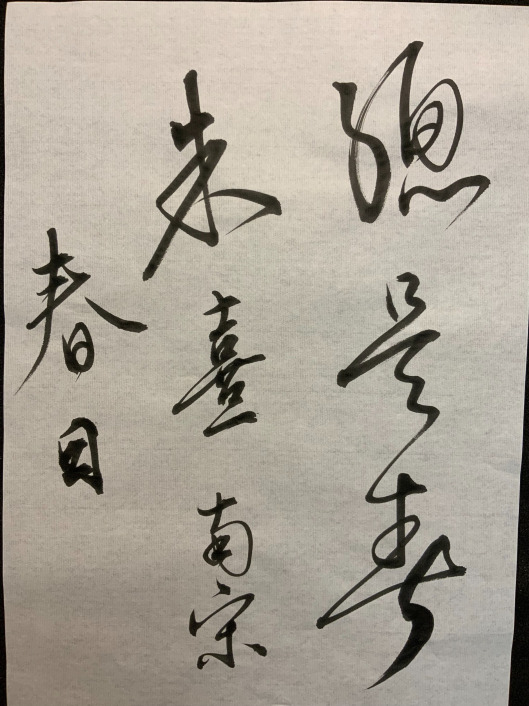 總是春
朱熹 南宋
春日